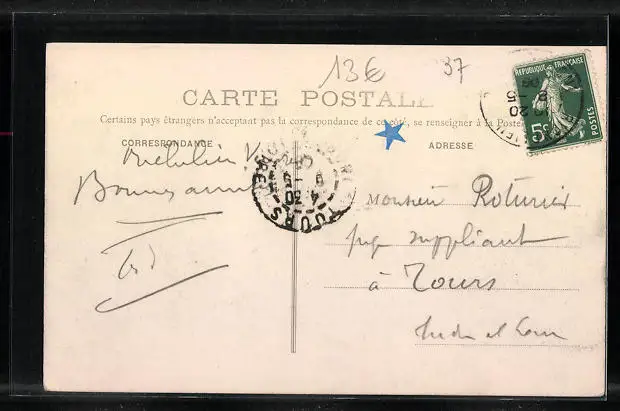 13€ 37
CARTE POSTALE
Certains pays étrangers n'acceptant pas la correspondance de ce côté, se renseigner à la Poste
CORRESPONDANCE
ADRESSE
REPUBLIQUE FRANÇAISE
5c
POSTES
20
5
09
Bonne santé
4 30
TOURS
Monsieur Roturier
juge suppliant
à Tours
Indre et Loire